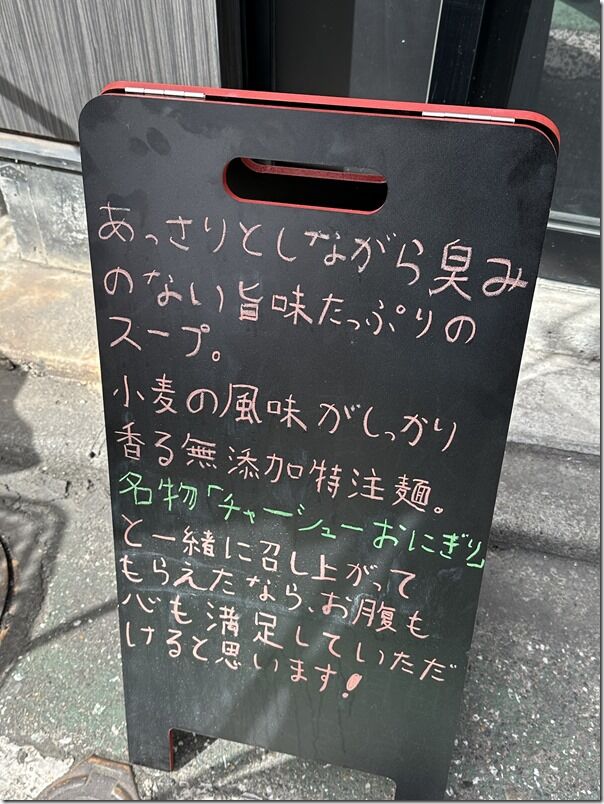 あっさりとしながら臭み
のない旨味たっぷりの
スープ。
小麦の風味がしっかり
香る無添加特注麺。
名物「チャーシューおにぎり」
と一緒に召し上がって
もらえたなら、お腹も
心も満足していただ
けると思います!